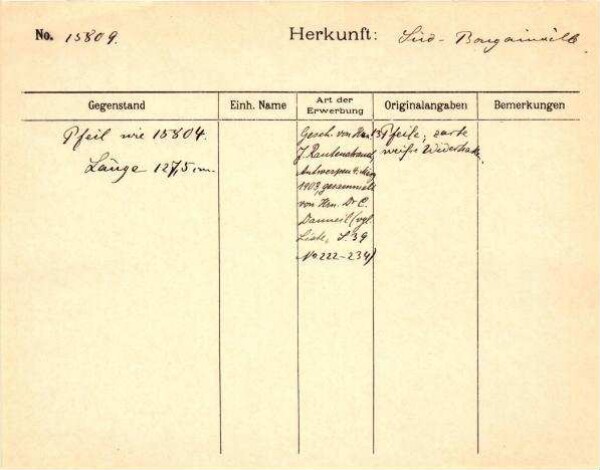 No. 15809.
Herkunft: Süd-Bougainville
Gegenstand
Einh. Name
Art der Erwerbung
Originalangaben
Bemerkungen
Pfeil wie 15804.
Länge 127,5 cm.
Gesch. von Hrn
J. Rautenstrauch
Antwerpen
1903, gesammelt
von Hrn. Dr C.
Danneil (vgl.
Liste, S. 39
No 222-234)
13 Pfeile, zarte
weiße Widerhaken